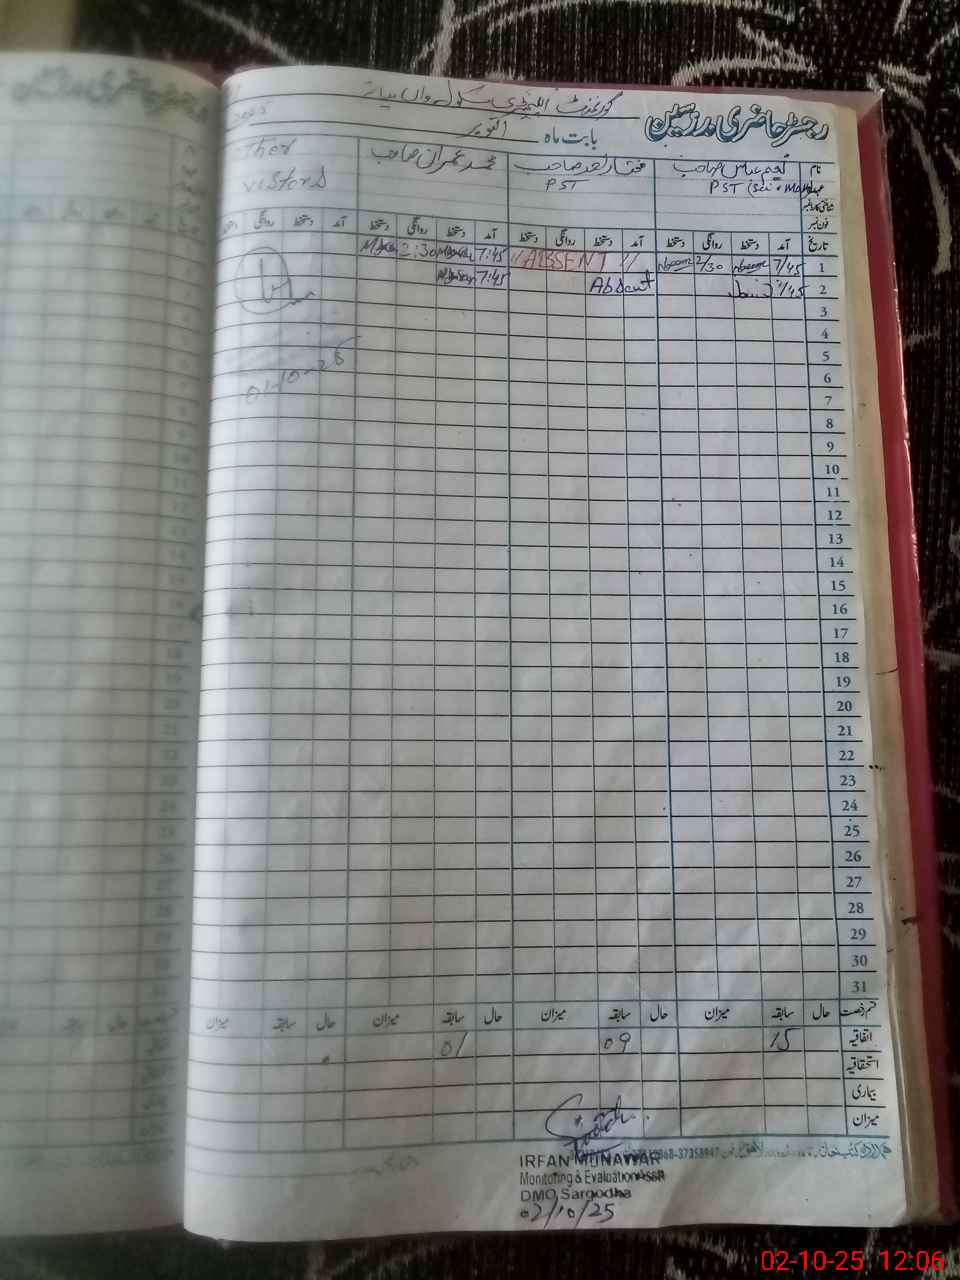 رجسٹر حاضری مدرسین
گورنمنٹ ایلیمنٹری سکول
بابت ماہ اکتوبر
نام نعیم عباس صاحب محمد عمران صاحب ther
PST PST visitors
شناختی کارڈ نمبر
فون نمبر
تاریخ آمد دستخط روانگی دستخط آمد دستخط روانگی دستخط آمد دستخط روانگی دستخط آمد دستخط روانگی دستخط
1 7/45 Naeem 2/30 Naeem // ABSENT // 7:45 2:30
2 Absent 7:45
3
4
5
6
01-10-25
7
8
9
10
11
12
13
14
15
16
17
18
19
20
21
22
23
24
25
26
27
28
29
30
31
قسم رخصت حال سابقہ میزان حال سابقہ میزان حال سابقہ میزان حال سابقہ میزان
اتفاقیہ 15 09 01
استحقاقیہ
بیماری
میزان
IRFAN MUNAWAR
Monitoring & Evaluation Asstt
DMO Sargodha
02/10/25
02-10-25 12:06